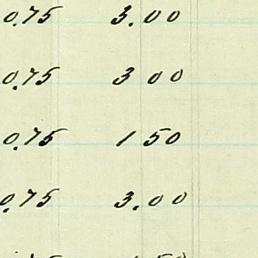 0.75 3.00
0.75 3 00
0.75 1 50
0.75 3.00